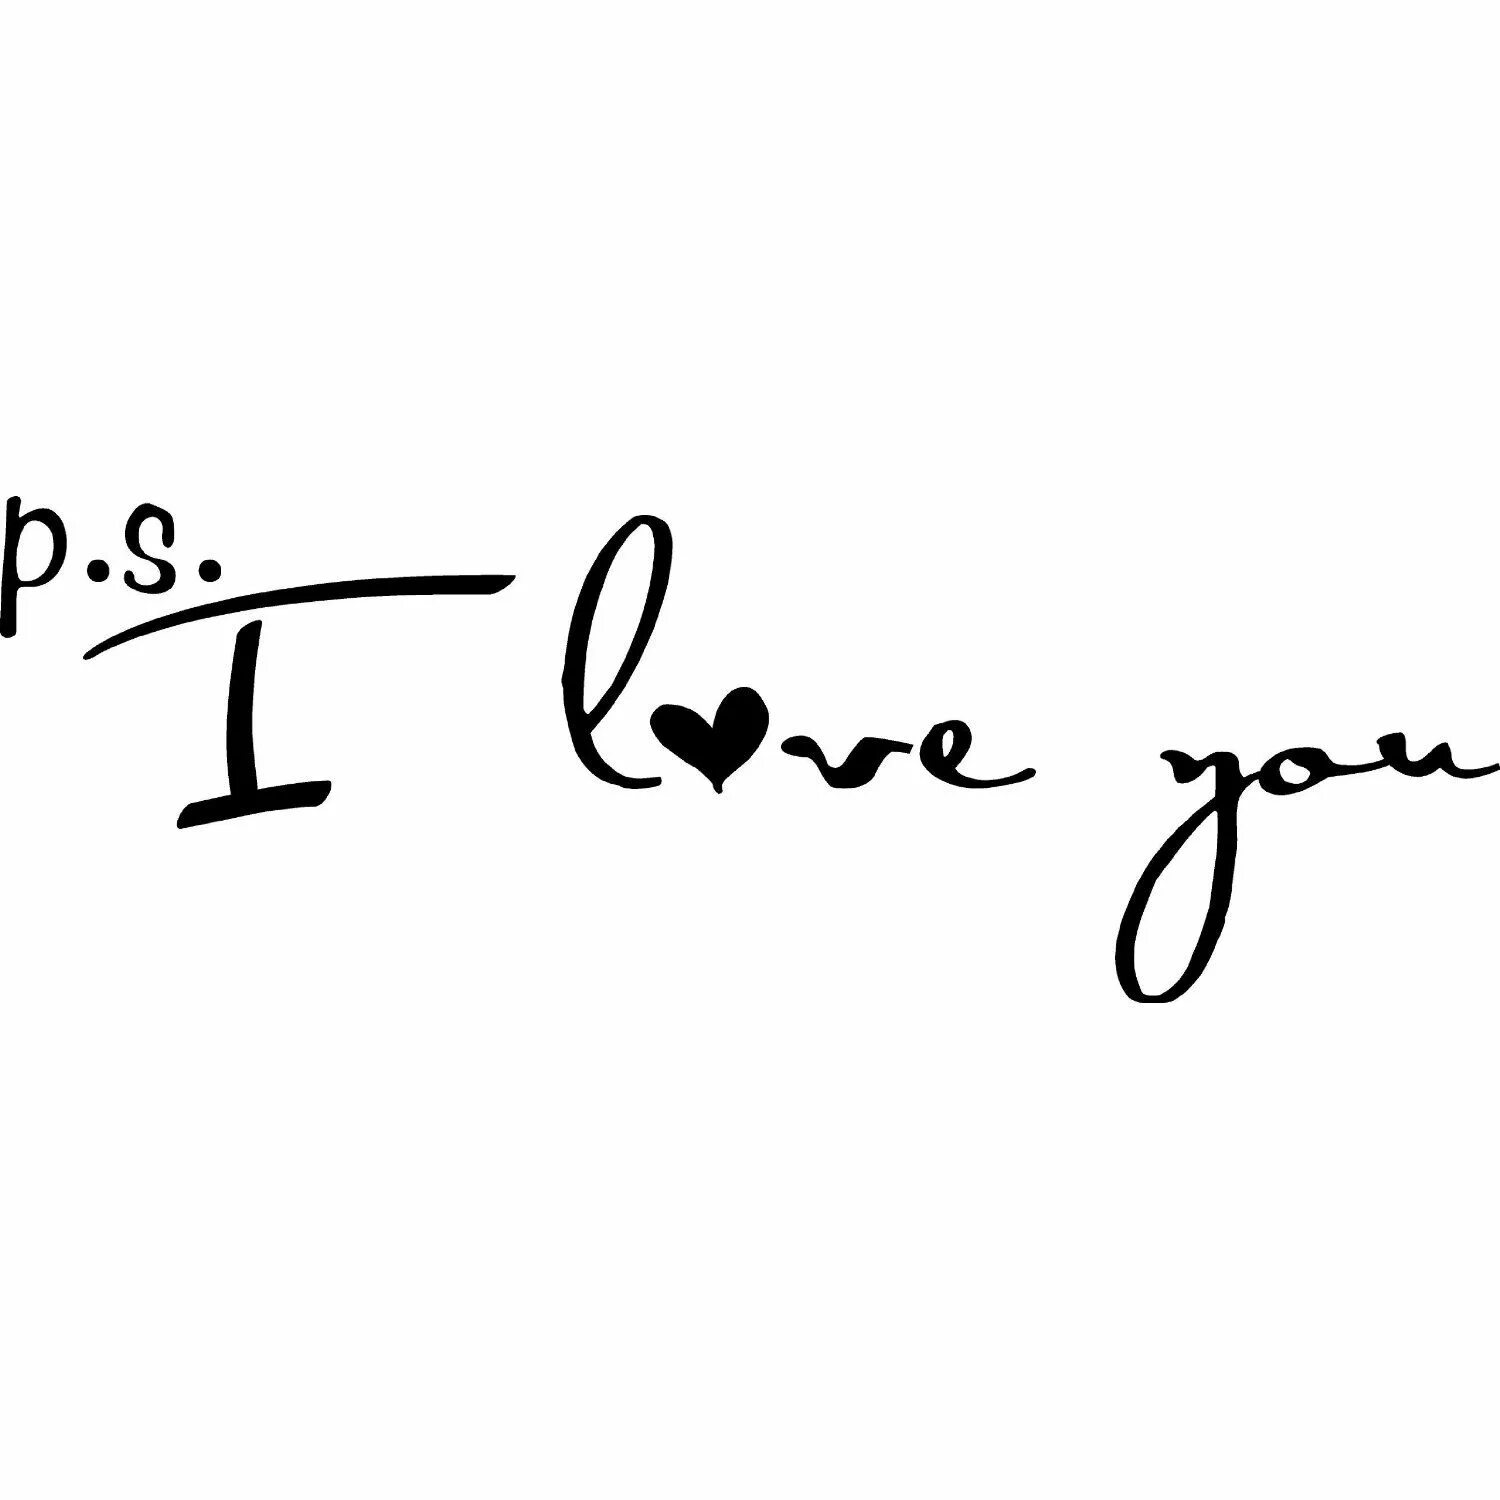 p.s.
I l♥ve you